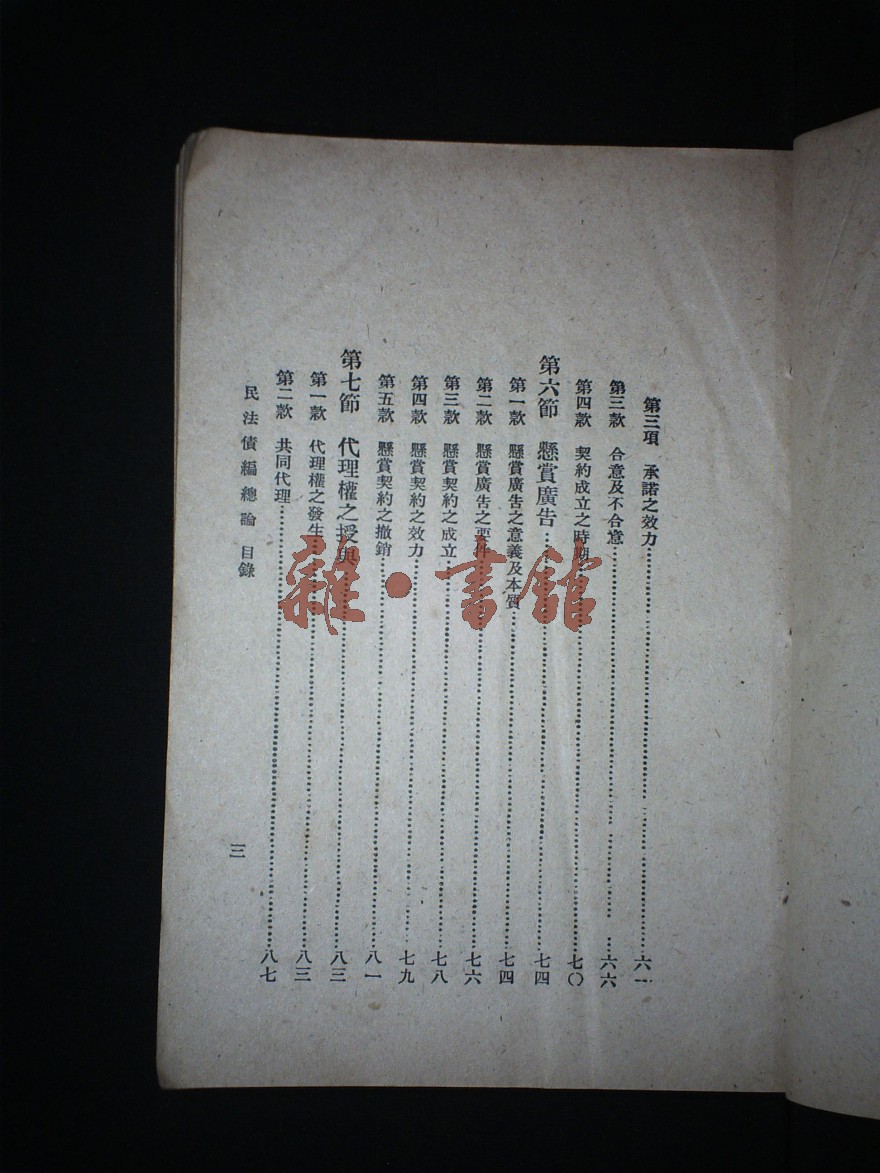 第三項 承諾之效力……………六一
第三款 合意及不合意……………六六
第四款 契約成立之時期……………七〇
第六節 懸賞廣告……………七四
第一款 懸賞廣告之意義及本質……………七四
第二款 懸賞廣告之要件……………七六
第三款 懸賞契約之成立……………七八
第四款 懸賞契約之效力……………七九
第五款 懸賞契約之撤銷……………八一
第七節 代理權之授與……………八三
第一款 代理權之發生……………八三
第二款 共同代理……………八七
民法債編總論 目錄
三
雜·書館